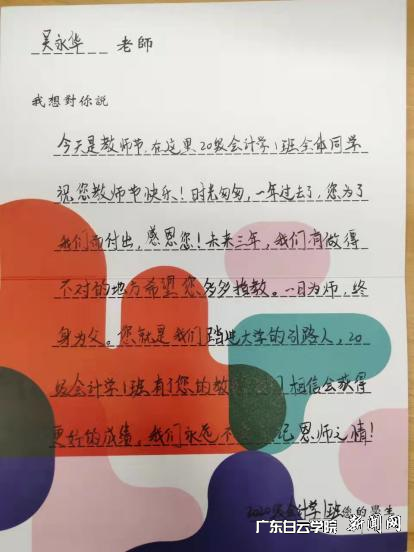 吴永华 老師
我想對你說
今天是教师节,在这里,20级会计学1班全体同学
祝您教师节快乐!时光匆匆,一年过去了,您为了
我们而付出,感恩您!未来三年,我们有做得
不对的地方希望您多多指教。一日为师,终
身为父。您就是我们踏进大学的引路人,20
级会计学1班有了您的教 相信会获得
更好的成绩,我们永远不 记恩师之情!
2020级会计学1班 您的學生
广东白云学院 新闻网